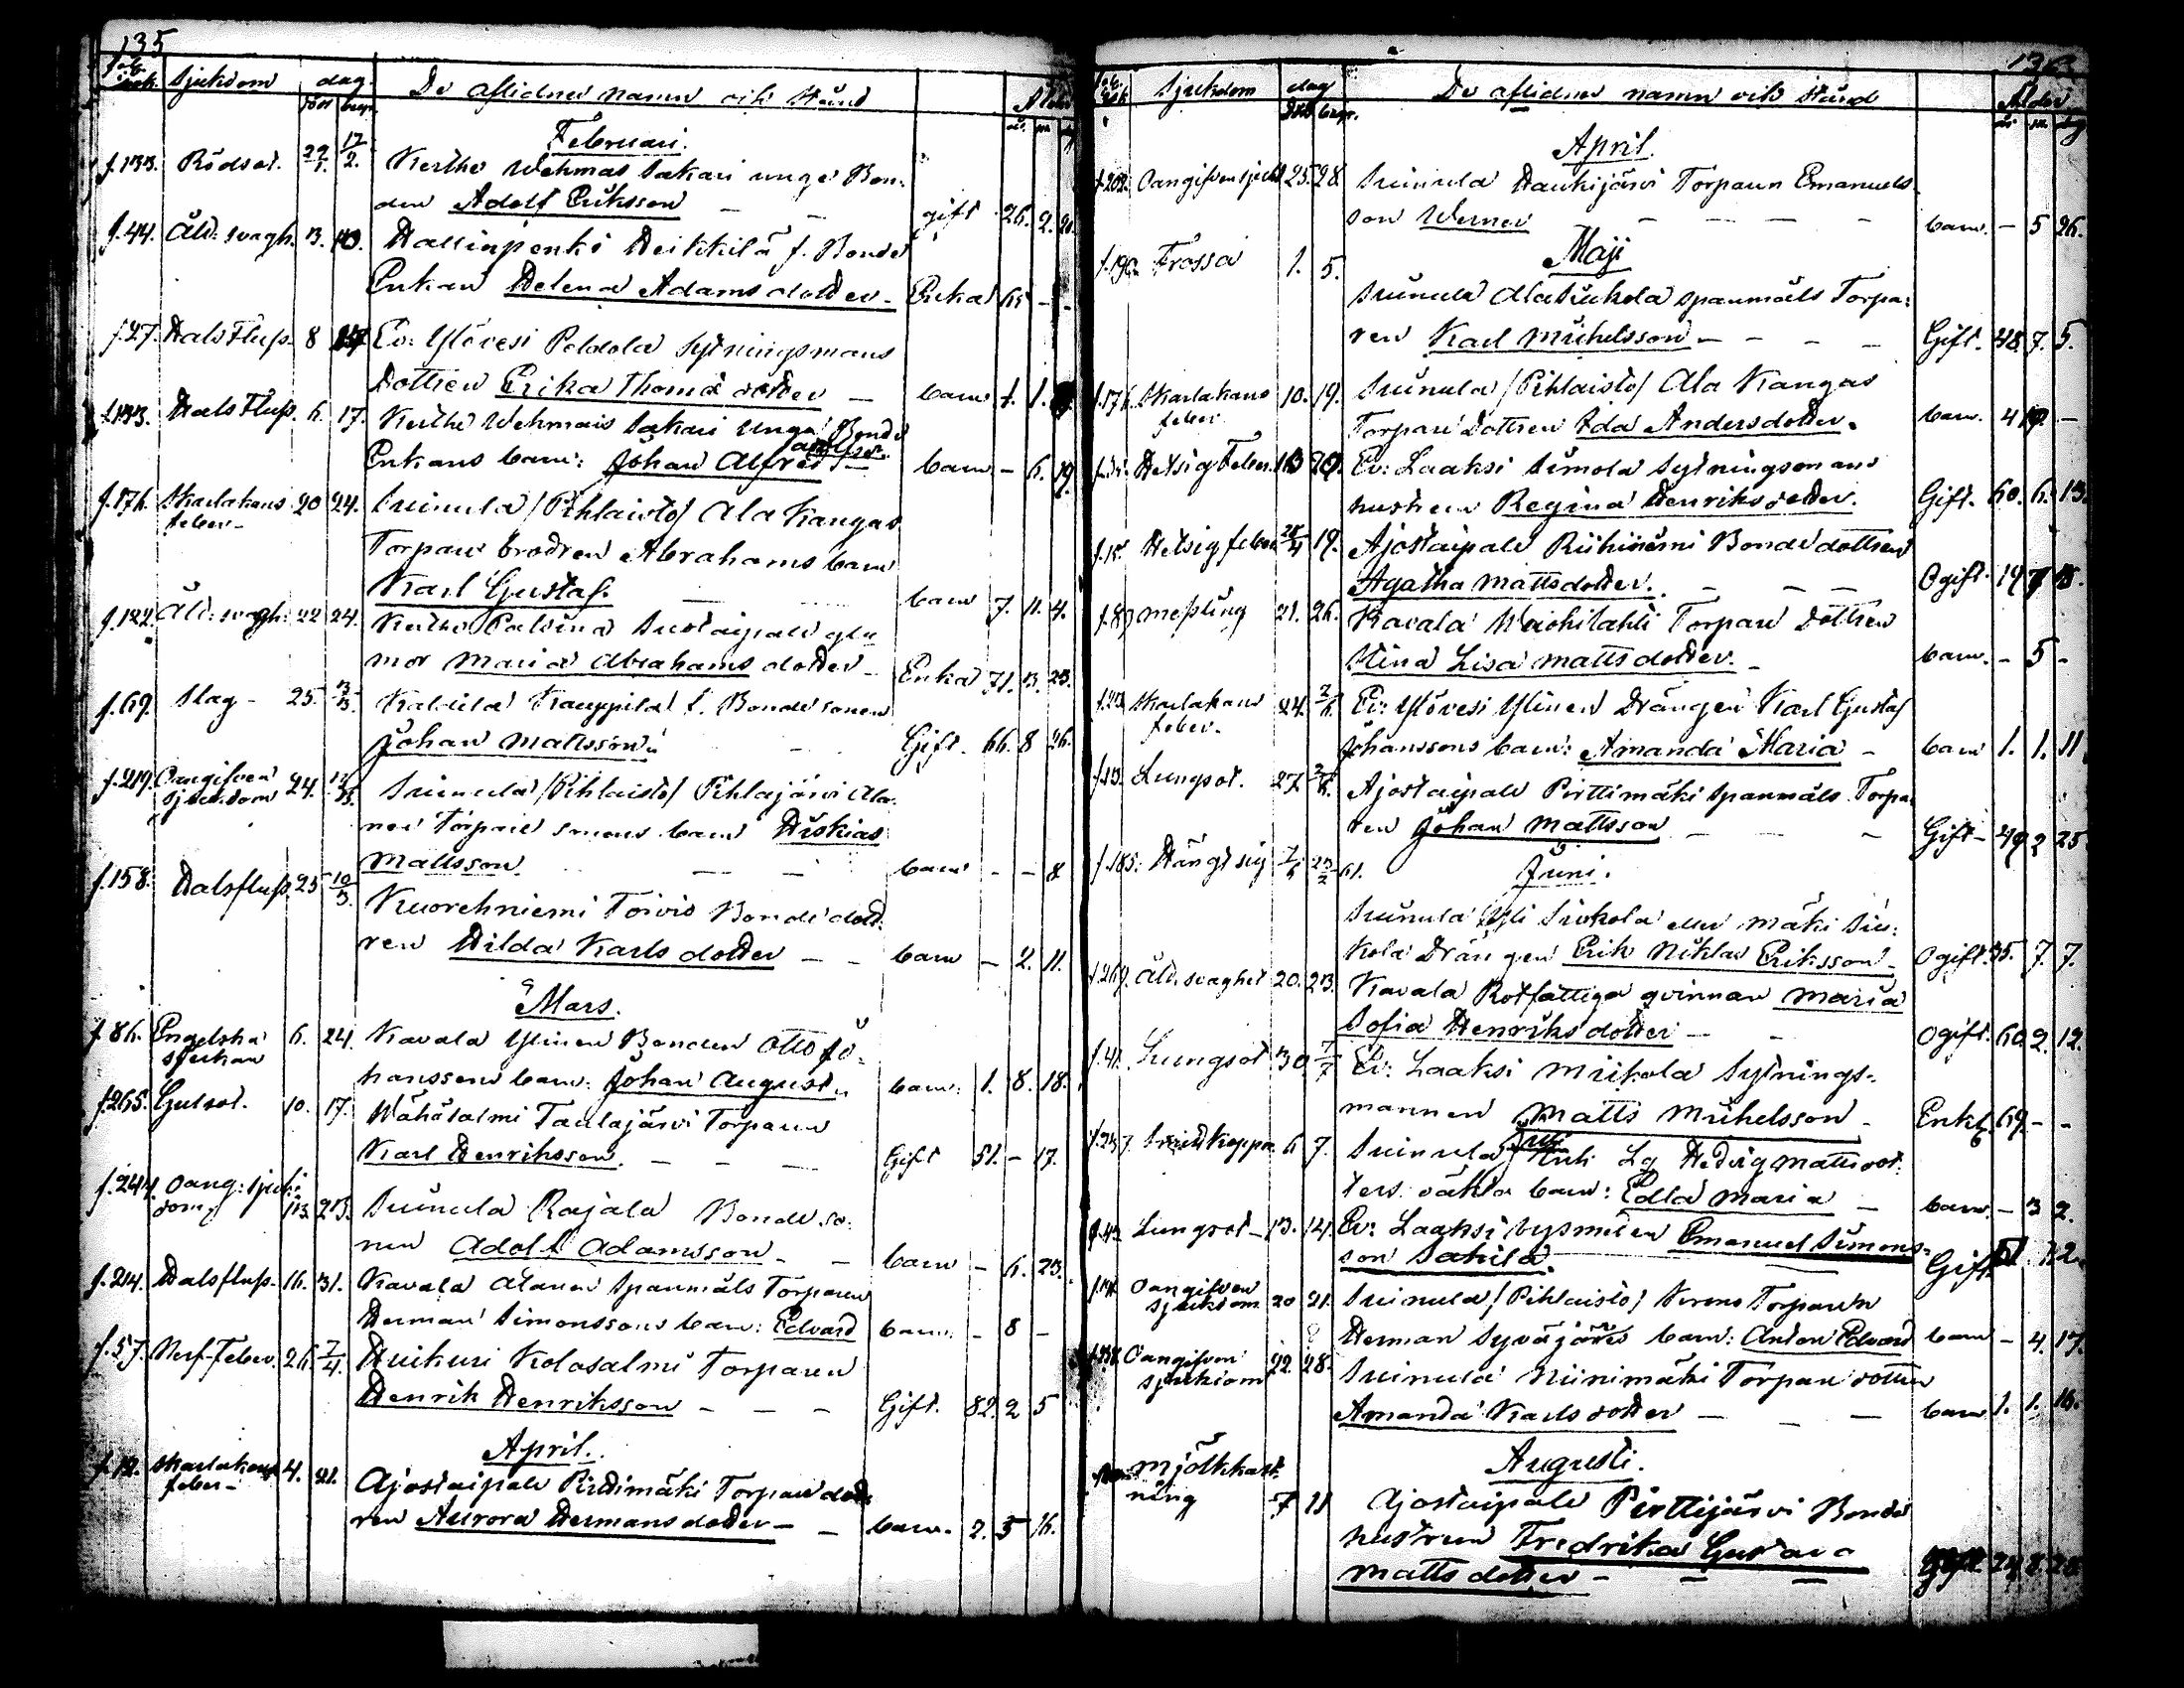 135
Sjukdom dag. De aflidnes namn och stånd Ålder
död begr. år. m. dg
Februari.
f.133. Rödsot. 29/1. 17/2. Kerthe Wehmas Sakari unge Bon-
den Adolf Eriksson — — gift 26. 2. 20.
f.44. Åld: svagh. 3. 10. Hallinpenki Heikkilä f. Bonde
Enkan Helena Adamsdotter. Enka 65 — -
f.27. Halsfluss. 8 Ev: Ylövesi Poldola Sytningsmans
Dottren Erika Thomædotter — barn 1.
f.133. Halsfluss. 6. 17. Kerthe Wehmais Sakari Unga Bonde
Enkans barn: Johan Alfred Adolfss. barn — 6. 19.
f.176. Skarlakans 20 24. Suinula /Pihlaisto/ Ala Kangas
feber-
Torpare brodren Abrahams barn
Karl Gustaf. barn 7. 11. 4.
f.122. Åld: svagh: 22 24. Kerthe Palsina Sustaipale gla
mor Maria Abrahamsdotter - Enka 71. 3. 23.
f.69. Slag - 25. 3/3. Kaluila Kauppila f. Bonde sonen
Johan Mattsson. - Gift. 66. 8 26.
f.219. Oangifven 24. Suinula /Pihlaisto/ Pihlajärvi Ala-
sjukdom
nen Torpare sonens barn Hiskias
Mattsson — — barn - - 8
f.158. Halsfluss. 25 10/3. Kuorehniemi Toivio Bonde dott-
ren Hilda Karlsdotter — - barn — 2. 11.
Mars.
f.86. Engelska 6. 24. Kavala Ylinen Bonden Otto Jo-
sjukan
hanssons barn: Johan August. barn: 1. 8. 18.
f.265. Gulsot. 10. 17. Wähäsalmi Taulajärvi Torparen
Karl Henriksson. — — — Gift 51. — 17.
f.244. Oang: sjuk- 13 23. Suinula Rajala Bonde so-
dom
nen Adolf Adamsson - — barn - 6. 23.
f.214. Halsfluss. 16. 31. Kavala Alanen Spanmåls Torparen
Herman Simonssons barn: Edvard barn: - 8 -
f.57. Nerf-Feber. 26. 7/4. Huikuri Kolosalmi Torparen
Henrik Henriksson - — — Gift. 82. 2 5
April.
f.12. Skarlakans 4. 21. Ajostaipale Pirttimäki Torpare dott-
feber-
ren Aurora Hermansdotter — - barn. 2. 5 16.
136
Sjukdom dag De aflidnes namn och stånd Ålder
död begr. år m. dg
April.
f.202. Oangifven sjukd 25. 28. Suinula Haukijärvi Torparn Emanuels-
son Werner — — — — — barn. — 5 26.
Maji
f.190. Frossa 1. 5. Suinula Alasiukola Spanmåls Torpa-
ren Karl Michelsson — - - — Gift. 48. 7. 5.
f.176. Skarlakans 10. 19. Suinula /Pihlaisto/ Ala Kangas
feber
Torpare Dottren Ida Andersdotter. barn. 4 —
Hetsig Feber. Ev: Laaksi Simola Sytningsmans
hustrun Regina Henriksdotter. Gift. 60. 6. 13.
f.15. Hetsig feber 28/4 19. Ajostaipale Riihiniemi Bonde dottren
Agatha Mattsdotter. - — — Ogift. 19
f.89 Messling 21. 26. Kavala Waihilahti Torpare Dottren
Stina Lisa Mattsdotter. - barn. - 5 -
Skarlakans 24. 2/6. Ev: Ylövesi Ylinen Drängen Karl Gustaf
feber.
Johanssons barn: Amanda Maria - barn 1. 1. 11
f.13. Lungsot. 27. 2/6. Ajostaipale Pirttimäki Spanmåls Torpa-
ren Johan Mattsson — — — Gift- 49 2 25
Juni.
f.185. Hängt sig 23/2 61. Suinula Yli Siukola eller Mäki Siu-
kola Drängen Erik Niklas Eriksson - Ogift. 35. 7. 7.
f.269. Åld. svaghet 20. 23. Kavala Rotfattiga qvinnan Maria
Sofia Henriksdotter — - Ogift. 60. 2. 12.
f.41. Lungsot 30. 7/7 Ev: Laaksi Mickola Sytnings-
mannen Matts Michelsson - Enkl. 69. - -
Juli
Stridkoppa 6 7. Suinula Lg Hedvig Mattsdot-
ters oäkta barn: Edla Maria — barn. - 3 2.
Lungsot - 13. 14. Ev: Laaksi bysmeden Emanuel Simons-
son Sakila. — Gift.
Oangifven 20 21. Suinula /Pihlaisto/ Torparen
sjukdom
Herman Syväjärvis barn: Anton Edvard barn - 4. 17.
Oangifven 22. 28. Suinula Niinimäki Torpare dottren
sjukdom
Amanda Karlsdotter — — — barn 1. 1. 16.
Augusti.
Mjölkkast- 7 11 Ajostaipale Pirttijärvi Bonde
ning
hustrun Fredrika Gustava
Mattsdotter - — — Gift 24. 8. 28